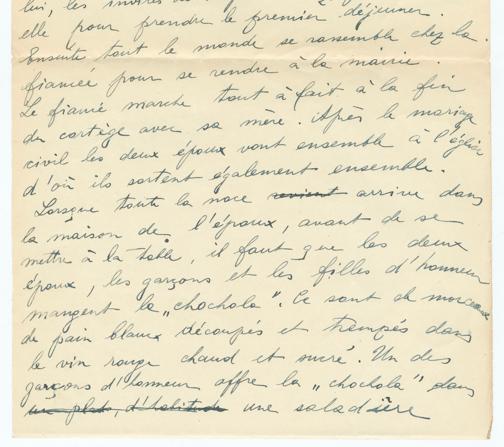 lui, les invités
elle pour prendre le premier déjeuner.
Ensuite tout le monde se rassemble chez la
fiancée pour se rendre à la mairie.
Le fiancé marche tout à fait à la fin
du cortège avec sa mère. Après le mariage
civil les deux époux vont ensemble à l'église
d'où ils sortent également ensemble.
Lorsque toute la noce revient arrive dans
la maison de l'époux, avant de se
mettre à la table, il faut que les deux
époux, les garçons et les filles d'honneur
mangent la „chochola". Ce sont de morceaux
de pain blanc découpés et trempés dans
le vin rouge chaud et sucré. Un des
garçons d'honneur offre la „chochola" dans
un plat, d'habitude une saladière